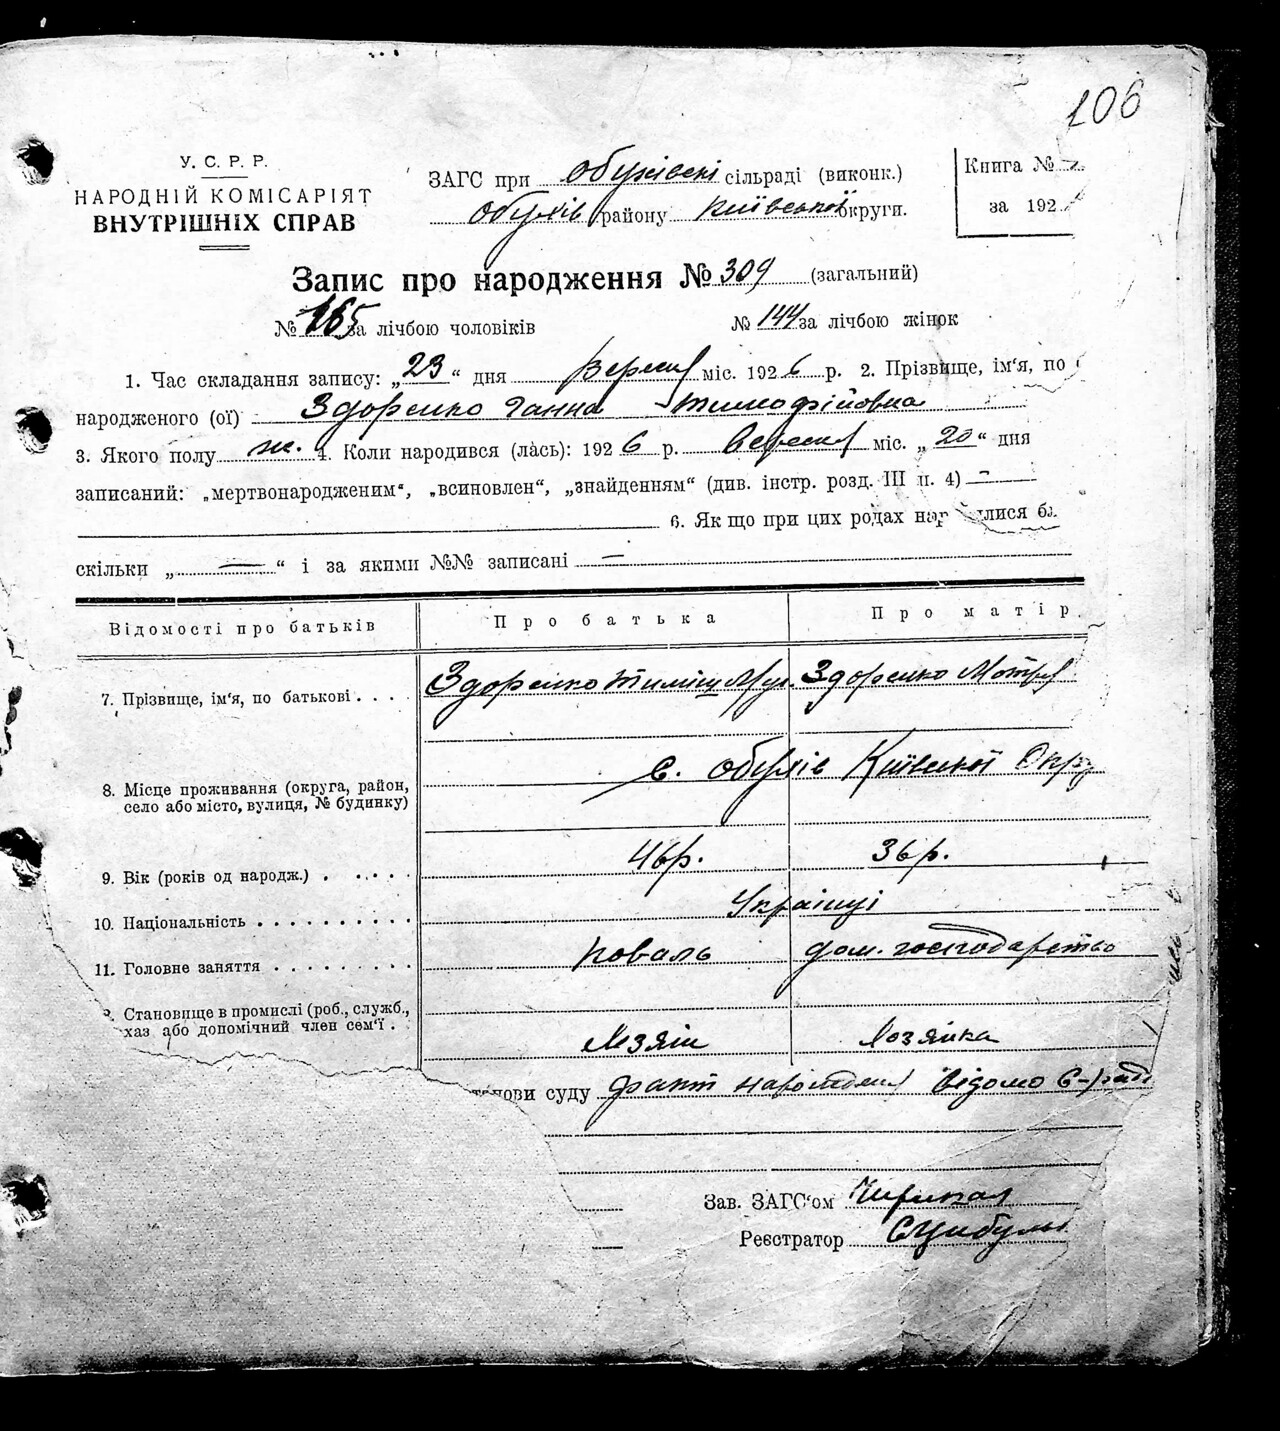 106
У. С. Р. Р.
НАРОДНІЙ КОМІСАРІЯТ
ВНУТРІШНІХ СПРАВ
ЗАГС при Обухівскі сільраді (виконк.)
Обухів району Київської округи.
Книга №
за 192
Запис про народження № 309 (загальний)
№ 165 за лічбою чоловіків № 144 за лічбою жінок
1. Час складання запису: „23“ дня Вересня міс. 1926 р. 2. Прізвище, ім‘я, по
народженого (ої) Здоренко Ганна Тимофійовна
3. Якого полу ж. 4. Коли народився (лась): 1926 р. Вересня міс. „20“ дня
записаний: „мертвонародженим“, „всиновлен“, „знайденням“ (див. інстр. розд. III п. 4) —
6. Як що при цих родах
скільки „—“ і за якими №№ записані —
Відомості про батьків Про батька Про матір
7. Прізвище, ім‘я, по батькові . . . . Здоренко Здоренко Мотря
8. Місце проживання (округа, район,
село або місто, вулиця, № будинку)
с. Обухів Київської Окр
9. Вік (років од народж.) . . . . . 46 р. 36 р.
10. Національність . . . . . . . . . . Українці
11. Головне заняття . . . . . . . . . Коваль дом. господарство
Становище в промислі (роб., служб.,
хаз або допомічний член сем‘ї .
Хозяін Хозяйка
суду факт народження відомо
Зав. ЗАГС‘ом
Реєстратор